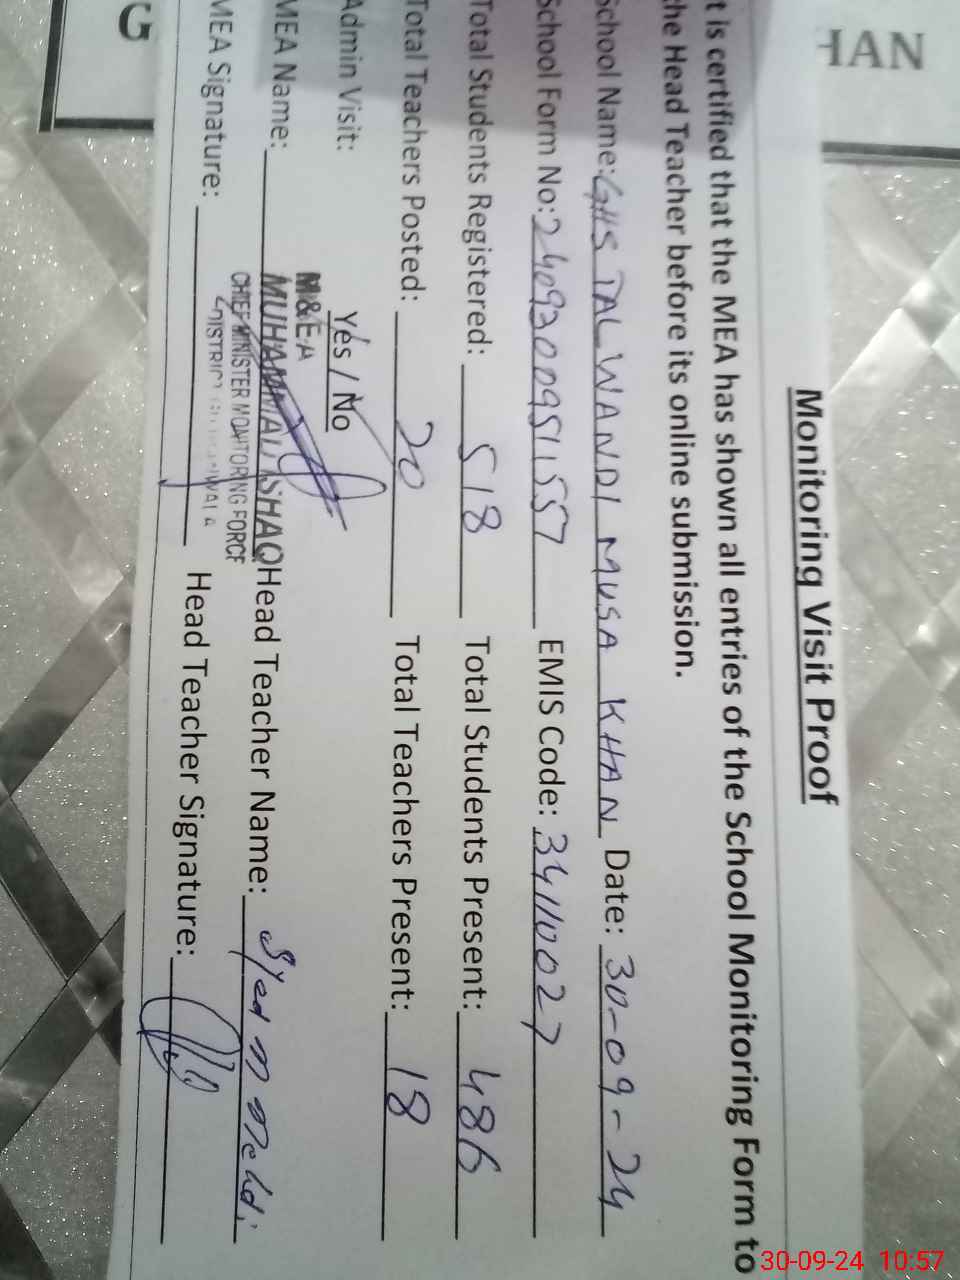 HAN
G
Monitoring Visit Proof
t is certified that the MEA has shown all entries of the School Monitoring Form to
he Head Teacher before its online submission.
School Name: GHS TALWANDI MUSA KHAN Date: 30-09-24
School Form No: 2409300951557 EMIS Code: 34110027
Total Students Registered: 518 Total Students Present: 486
Total Teachers Posted: 20 Total Teachers Present: 18
Admin Visit: Yes / No
M&EA
MEA Name: MUHAMMAD ISHAQ Head Teacher Name: Syed M Mehdi
CHIEF MINISTER MONITORING FORCE
MEA Signature: Head Teacher Signature:
DISTRICT
30-09-24 10:57